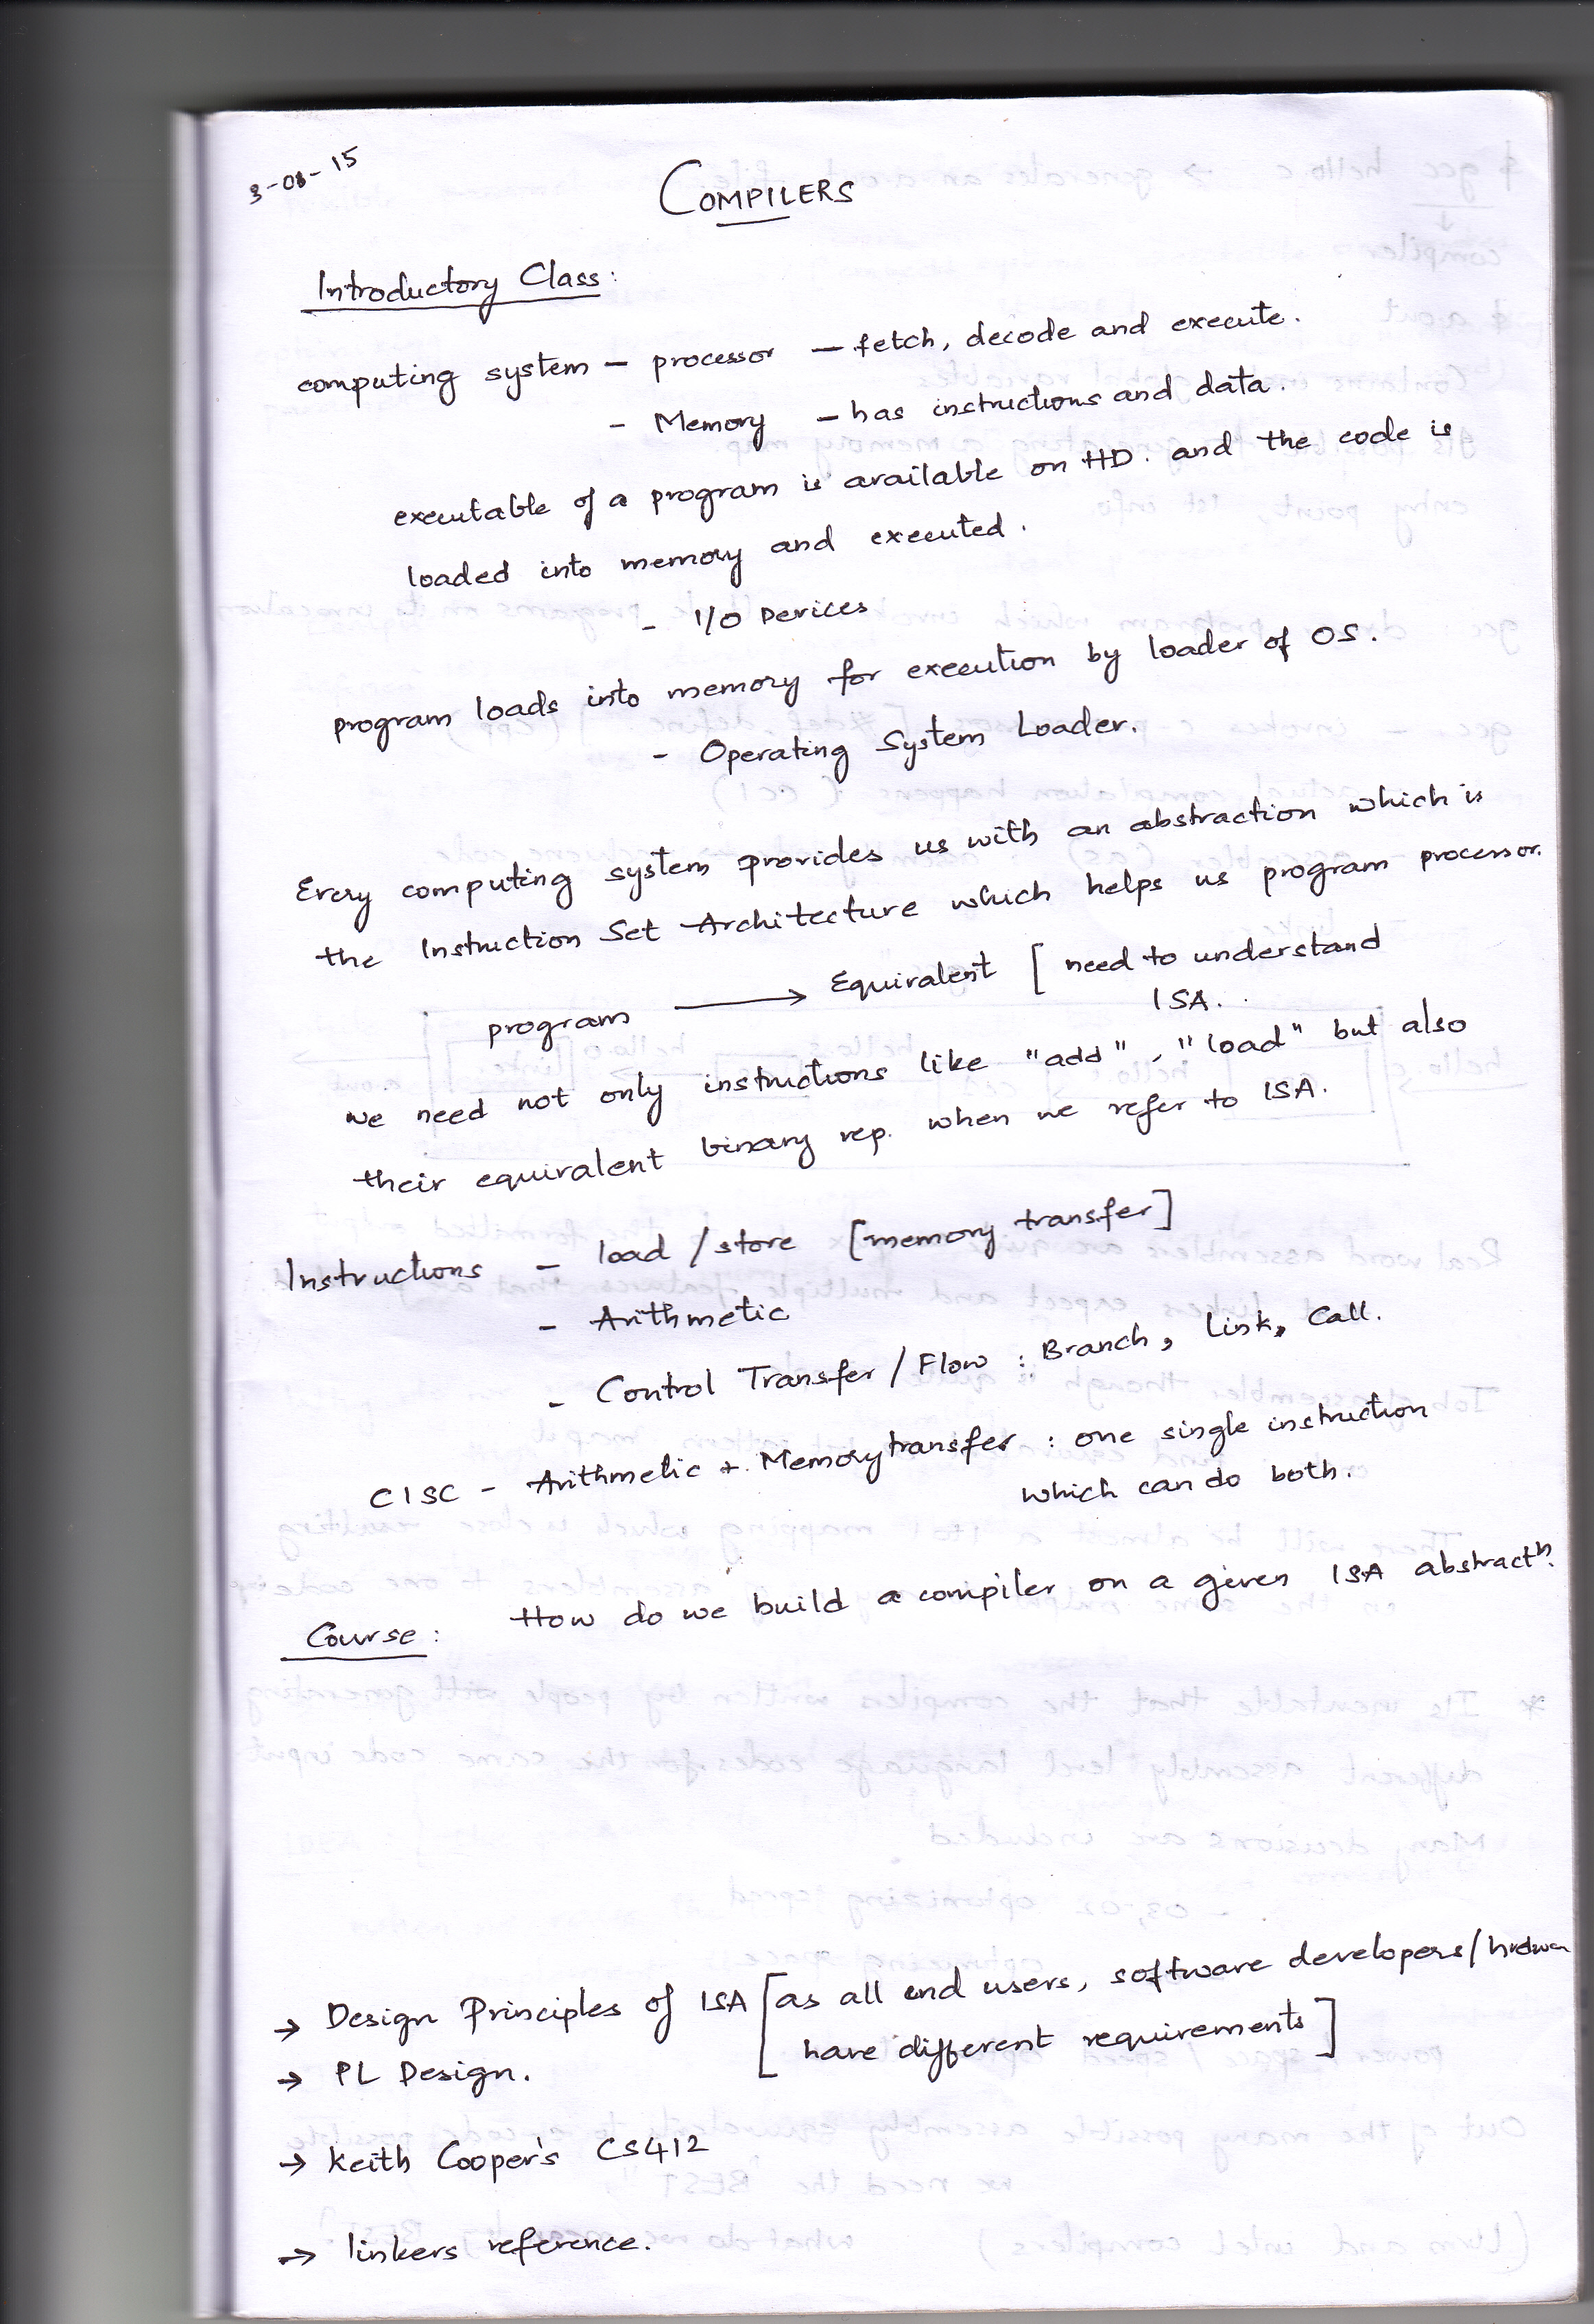 3-08-15
COMPILERS
Introductory Class:
computing system – processor – fetch, decode and execute.
- Memory – has instructions and data.
executable of a program is available on HD. and the code is
loaded into memory and executed.
- I/O Devices
program loads into memory for execution by loader of OS.
- Operating System Loader.
Every computing system provides us with an abstraction which is
the Instruction Set Architecture which helps us program processor.
program ⟶ Equivalent [ need to understand
ISA.
we need not only instructions like "add", "load" but also
their equivalent binary rep. when we refer to ISA.
Instructions – load / store [memory transfer]
- Arithmetic
- Control Transfer / Flow : Branch, Link, Call.
CISC - Arithmetic + Memory transfer : one single instruction
which can do both.
Course: How do we build a compiler on a given ISA abstractn.
→ Design Principles of ISA [as all end users, software developers/
have different requirements]
→ PL Design.
→ Keith Cooper's CS412
→ linkers reference.